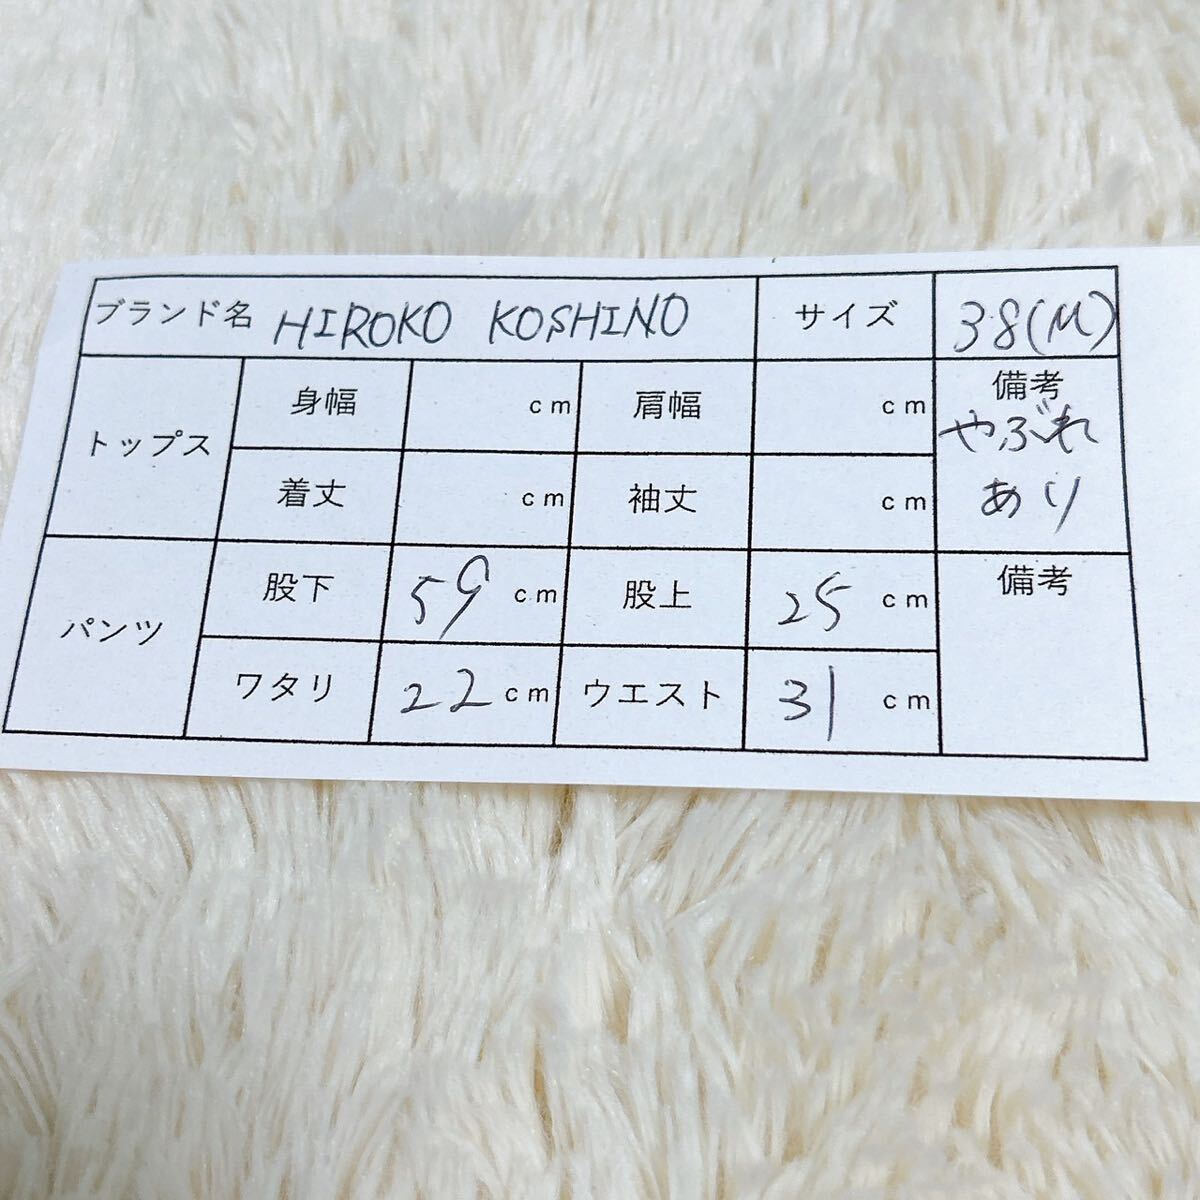 ブランド名 HIROKO KOSHINO サイズ 38(M)
トップス 身幅 cm 肩幅 cm 備考
やぶれ
あり
着丈 cm 袖丈 cm
パンツ 股下 59 cm 股上 25 cm 備考
ワタリ 22 cm ウエスト 31 cm